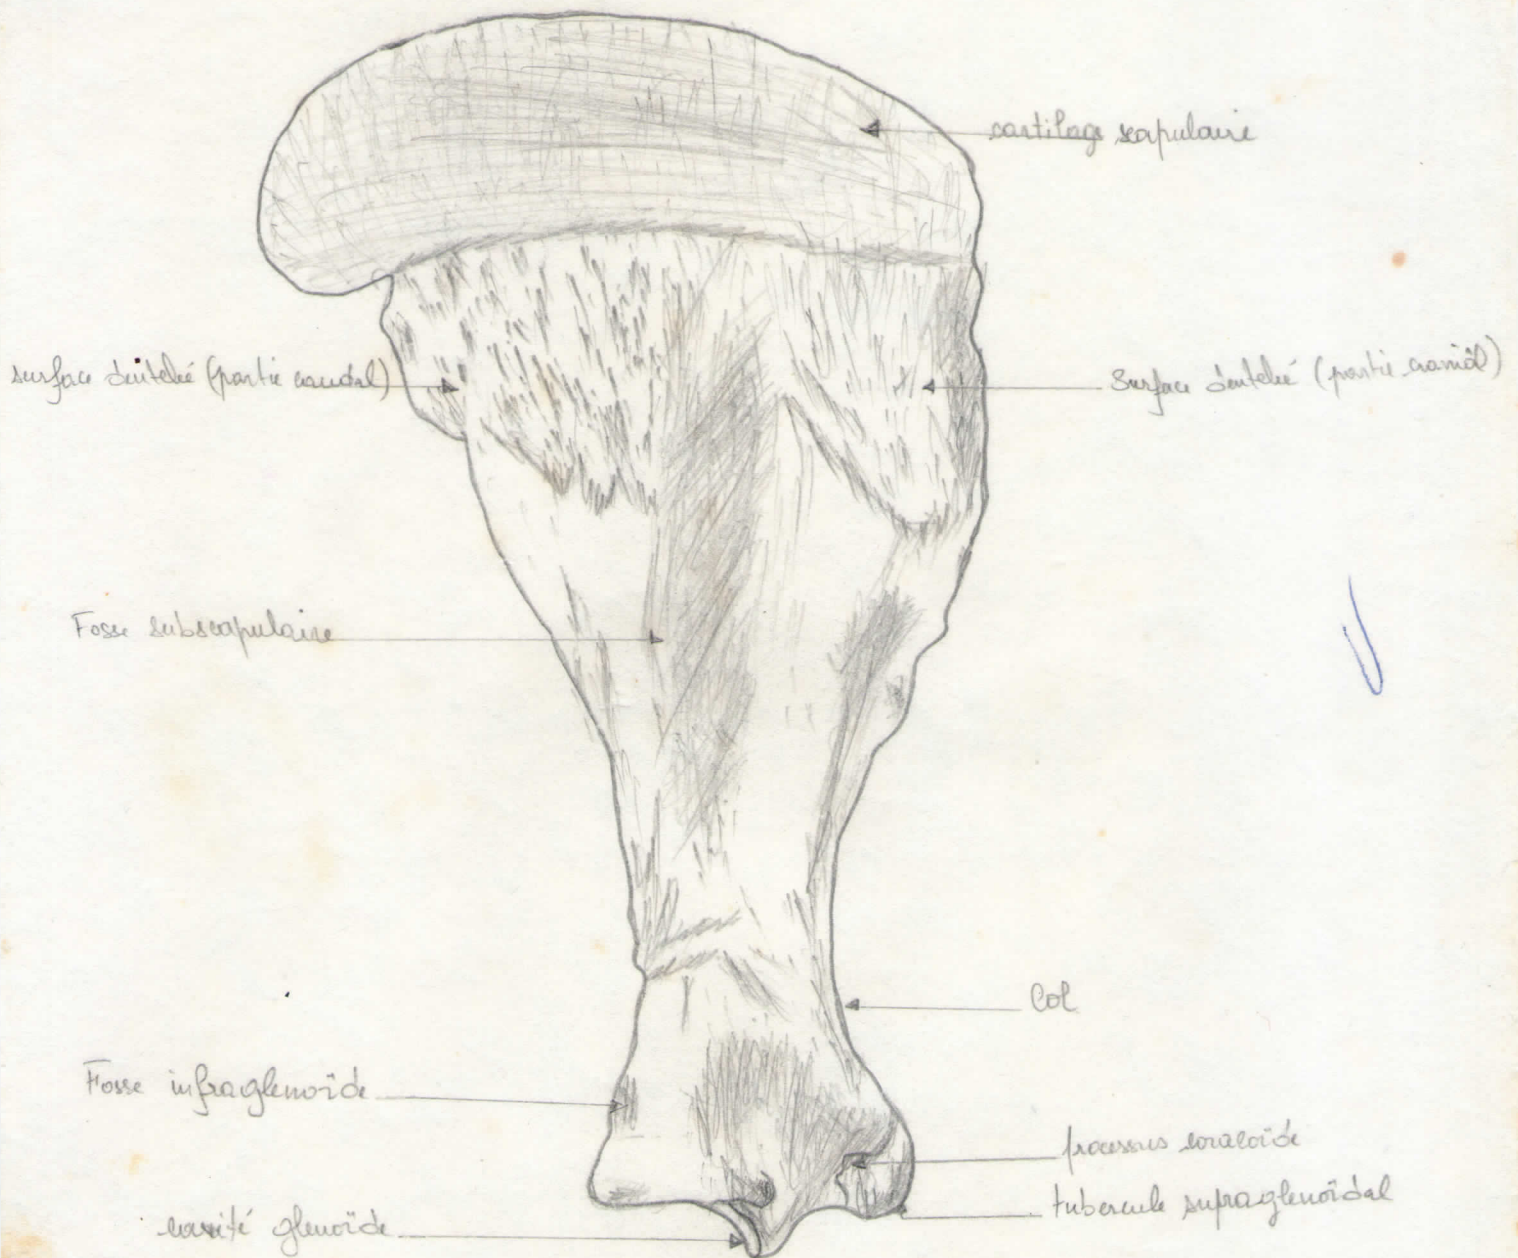 cartilage scapulaire
surface dentelé (partie caudal)
Surface dentelé (partie craniâl)
Fosse subscapulaire
Col
Fosse infraglenoïde
processus coracoïde
tubercule supraglenoïdal
cavité glenoïde